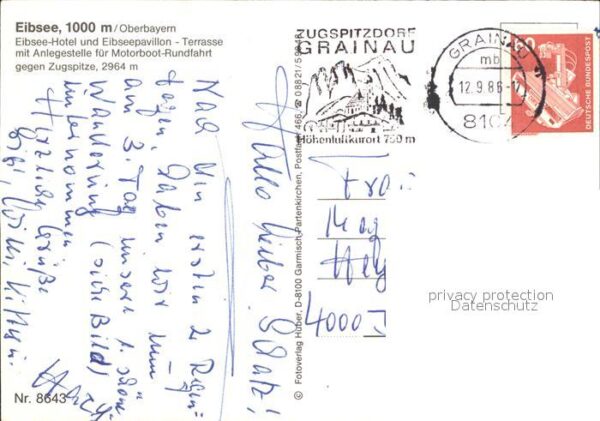 Eibsee, 1000 m/Oberbayern
Eibsee-Hotel und Eibseepavillon - Terrasse
mit Anlegestelle für Motorboot-Rundfahrt
gegen Zugspitze, 2964 m
Hallo lieber Schatz!
Nach den ersten 2 Regen=
tagen, haben wir nun
am 3. Tag unsere 1. schöne
Wanderung (siehe Bild)
unternommen
Herzliche Grüße
Nr. 8643
© Fotoverlag Huber, D-8100 Garmisch-Partenkirchen, Postfach 466, ☎ 08821/
ZUGSPITZDORF
GRAINAU
Höhenluftkurort 750 m
GRAINAU
mb
12.9.86-
810
DEUTSCHE BUNDESPOST
4000
privacy protection
Datenschutz